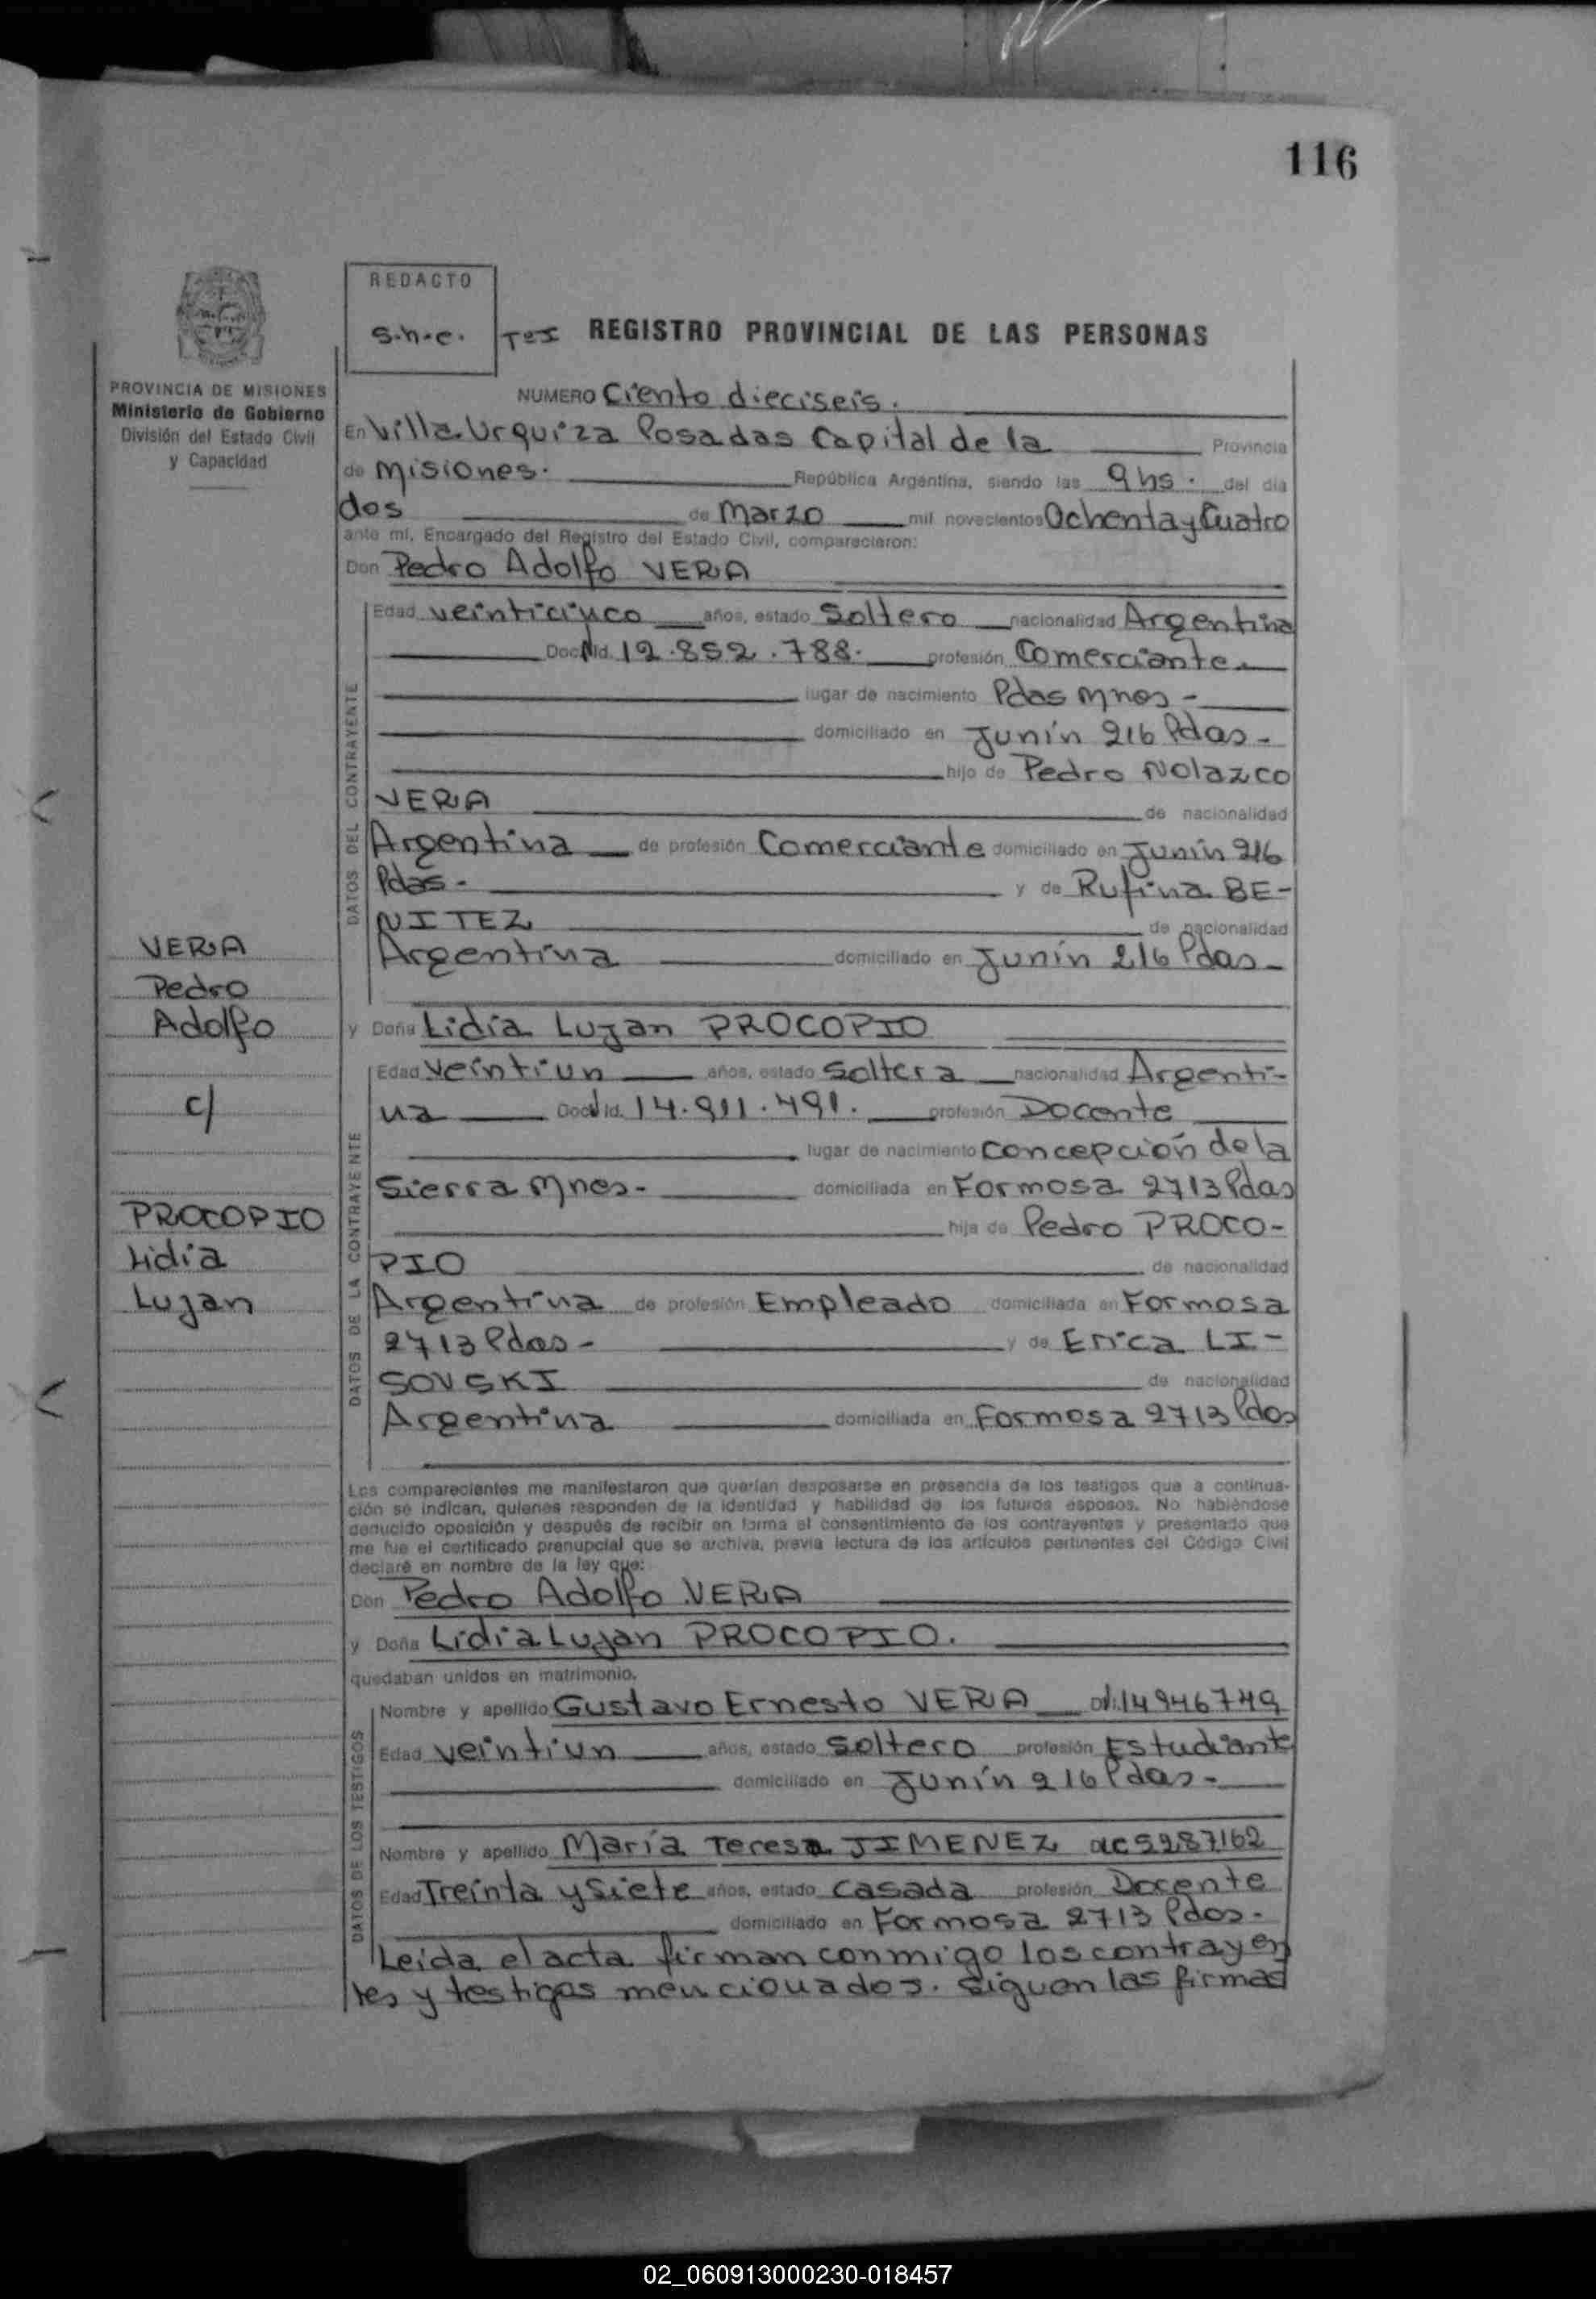 116
REDACTO
s.h.e.
Tº I REGISTRO PROVINCIAL DE LAS PERSONAS
PROVINCIA DE MISIONES
Ministerio de Gobierno
División del Estado Civil
y Capacidad
NUMERO Ciento dieciseis.
En Villa Urquiza Posadas Capital de la Provincia
de Misiones. República Argentina, siendo las 9 hs. del día
dos de Marzo mil novecientos Ochenta y Cuatro
ante mí, Encargado del Registro del Estado Civil, comparecieron:
Don Pedro Adolfo VERA
DATOS DEL CONTRAYENTE
Edad veinticinco años, estado Soltero nacionalidad Argentina
Doc. Id. 12.852.788. profesión Comerciante.
lugar de nacimiento Pdas Mnes-
domiciliado en Junín 216 Pdas-
hijo de Pedro Nolazco
VERA de nacionalidad
Argentina de profesión Comerciante domiciliado en Junín 216
Pdas- y de Rufina BE-
NITEZ de nacionalidad
Argentina domiciliado en Junín 216 Pdas-
VERA
Pedro
Adolfo
c/
PROCOPIO
Lidia
Lujan
y Doña Lidia Lujan PROCOPIO
DATOS DE LA CONTRAYENTE
Edad veintiun años, estado Soltera nacionalidad Argenti-
na Doc. Id. 14.911.491. profesión Docente
lugar de nacimiento Concepción de la
Sierra Mnes- domiciliada en Formosa 2713 Pdas
hija de Pedro PROCO-
PIO de nacionalidad
Argentina de profesión Empleado domiciliada en Formosa
2713 Pdas- y de Erica LI-
SOVSKI de nacionalidad
Argentina domiciliada en Formosa 2713 Pdas
Los comparecientes me manifestaron que querían desposarse en presencia de los testigos que a continua-
ción se indican, quienes responden de la identidad y habilidad de los futuros esposos. No habiéndose
deducido oposición y después de recibir en forma el consentimiento de los contrayentes y presentado que
me fue el certificado prenupcial que se archiva, previa lectura de los artículos pertinentes del Código Civil
declaré en nombre de la ley que:
Don Pedro Adolfo VERA
y Doña Lidia Lujan PROCOPIO.
quedaban unidos en matrimonio.
DATOS DE LOS TESTIGOS
Nombre y apellido Gustavo Ernesto VERA 14946749
Edad veintiun años, estado Soltero profesión Estudiante
domiciliado en Junín 216 Pdas-
Nombre y apellido María Teresa JIMENEZ 5287162
Edad Treinta y Siete años, estado casada profesión Docente
domiciliado en Formosa 2713 Pdas-
Leída el acta firman conmigo los contrayen
tes y testigos mencionados. Siguen las firmas
02_060913000230-018457